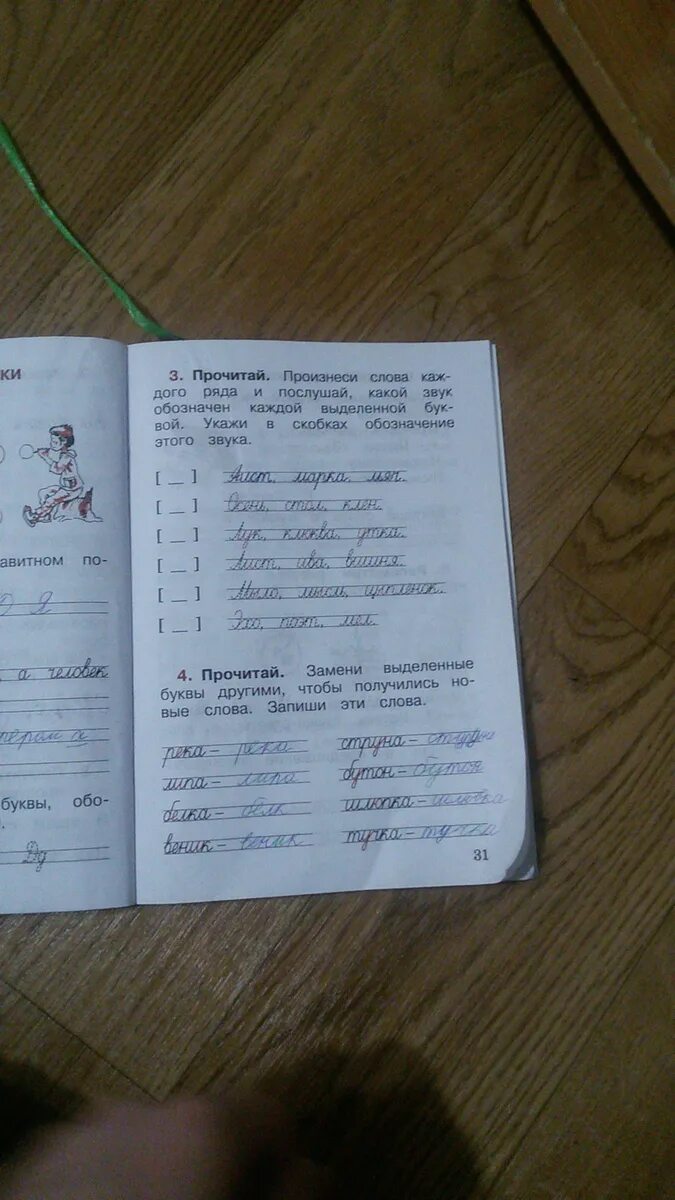 ки
авитном по-
О Я
а человек
буквы, обо-
Дд
3. Прочитай. Произнеси слова каж-
дого ряда и послушай, какой звук
обозначен каждой выделенной бук-
вой. Укажи в скобках обозначение
этого звука.
[ _ ] Аист, марка, мяч.
[ _ ] Осень, стол, клён.
[ _ ] Лук, клюква, утка.
[ _ ] Аист, ива, вишня.
[ _ ] Мыло, мысль, цыплёнок.
[ _ ] Эхо, поэт, мел.
4. Прочитай. Замени выделенные
буквы другими, чтобы получились но-
вые слова. Запиши эти слова.
река – река струна –
липа – липа бутон – бутон
белка – белк шлюпка –
веник – веник тучка – тучка
31